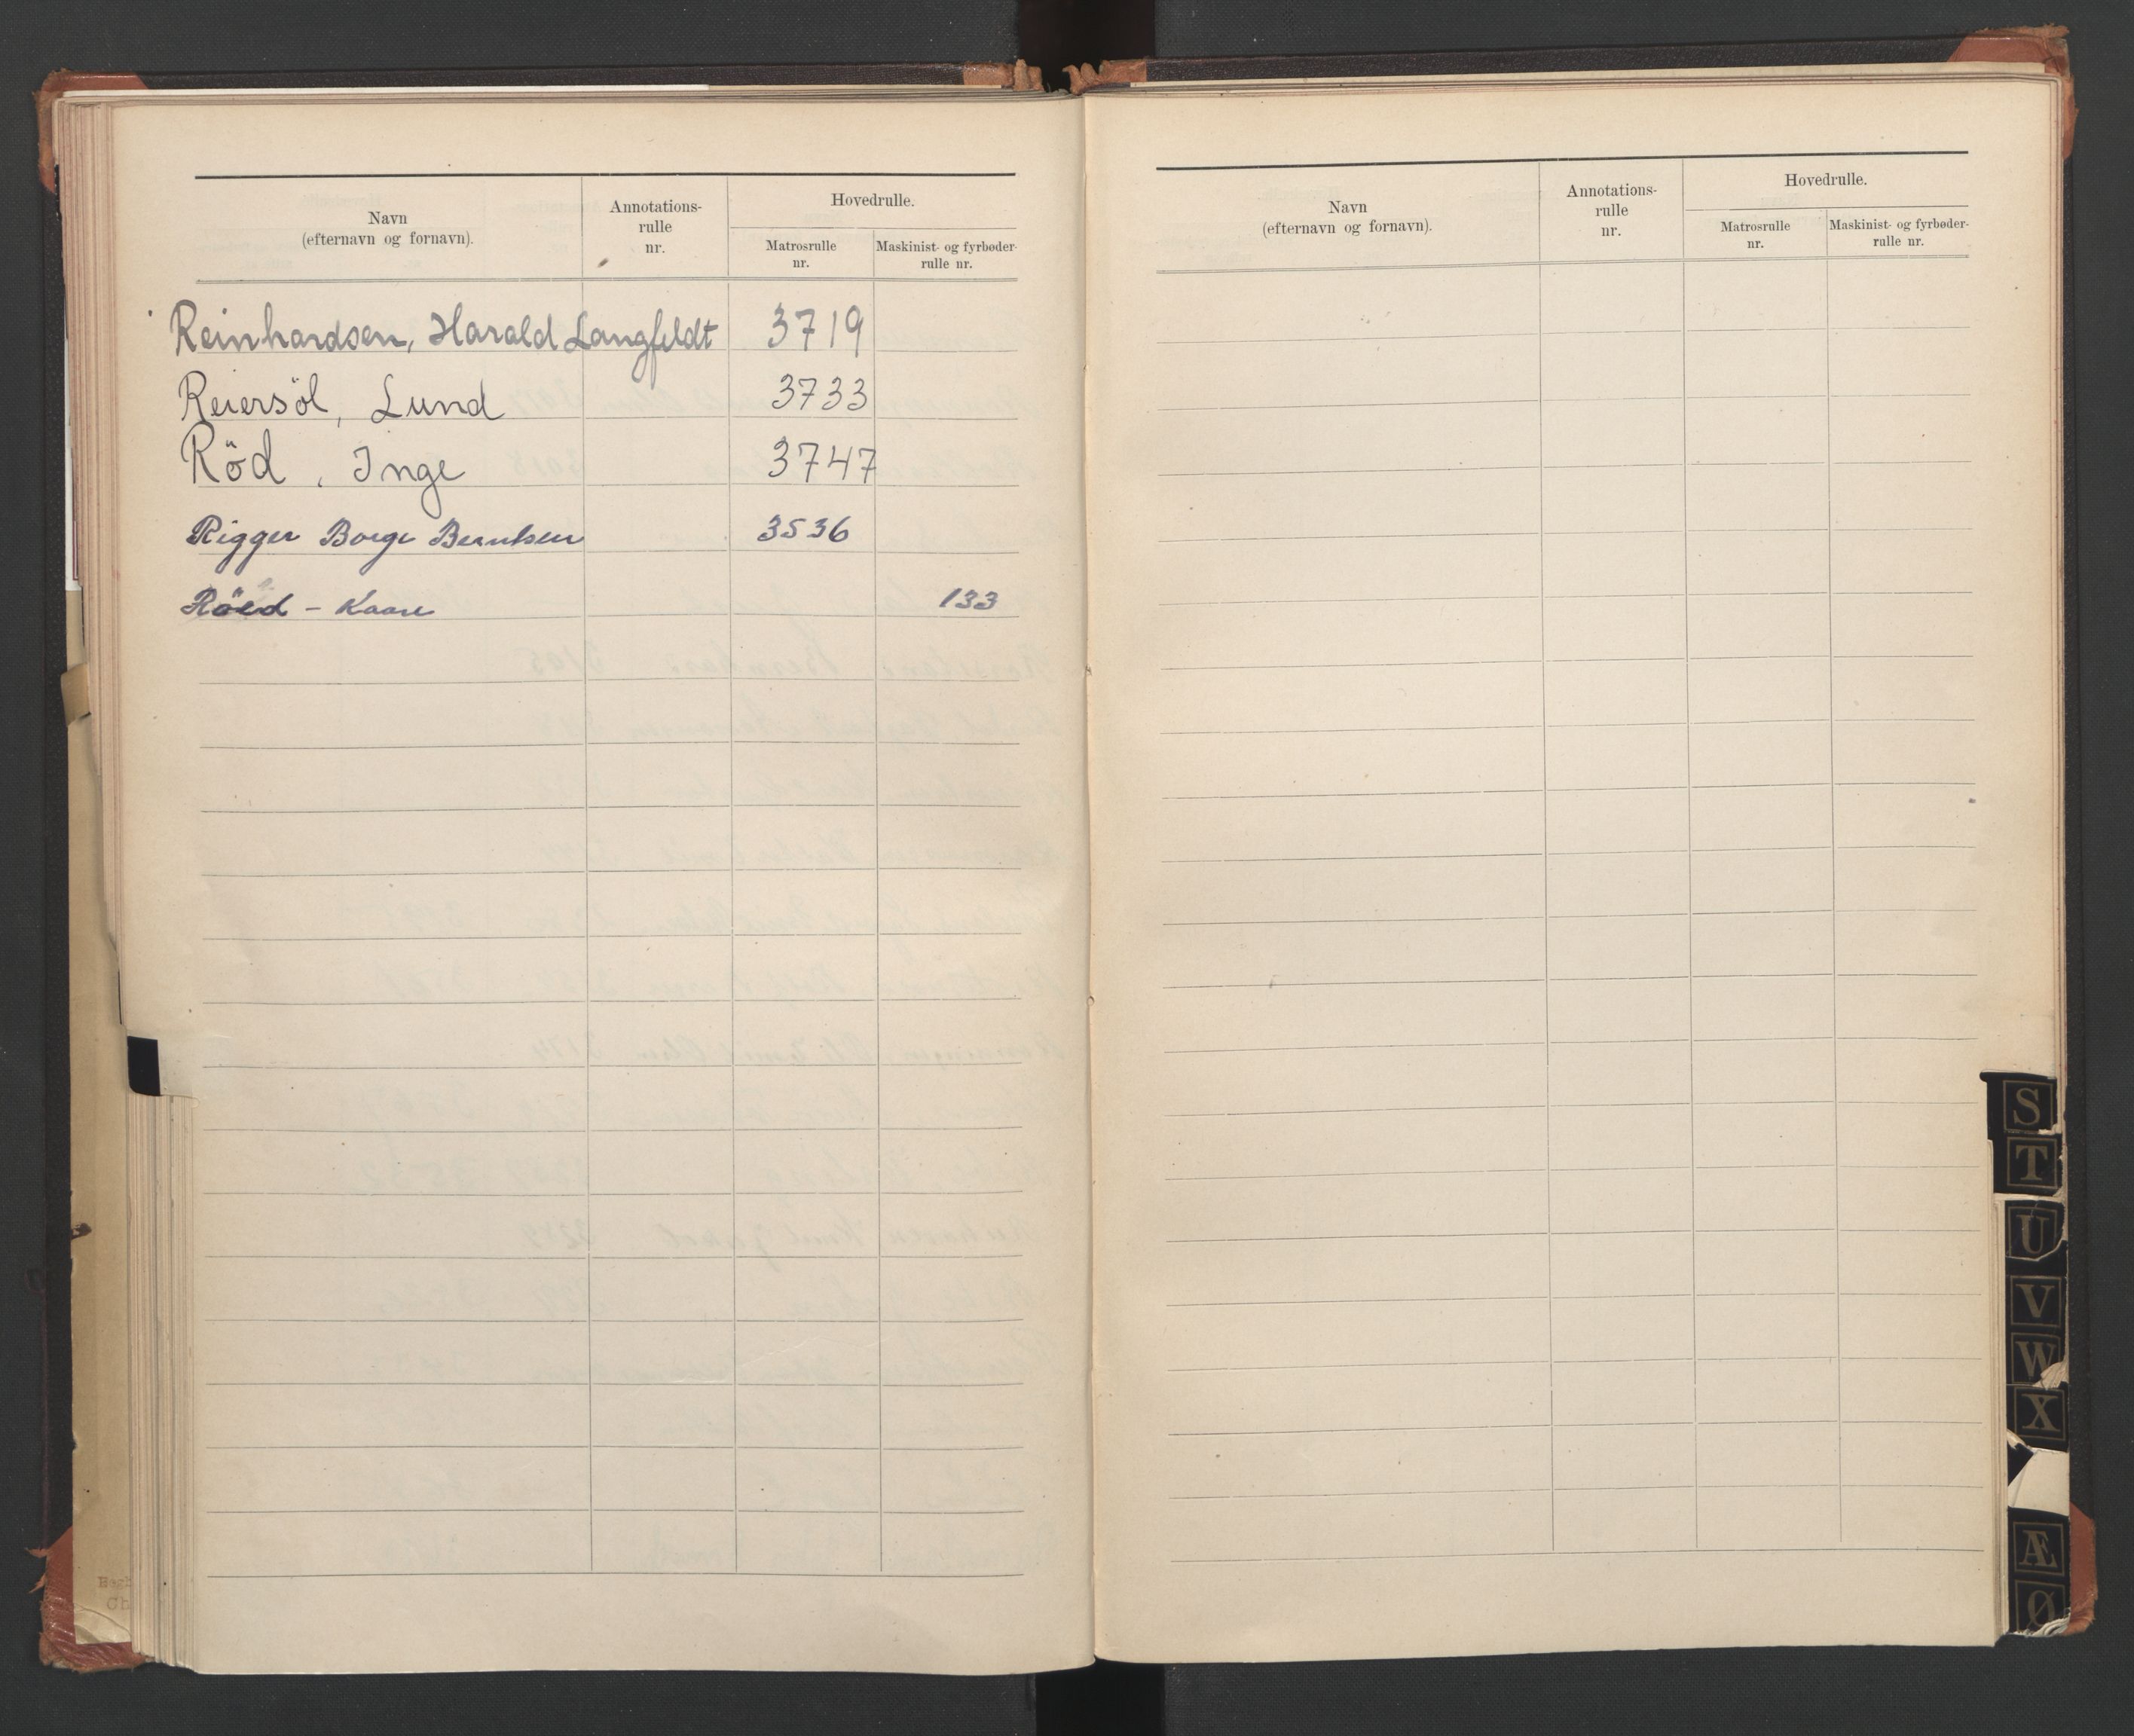 Navn
(efternavn og fornavn).
Annotations-
rulle
nr.
Hovedrulle.
Matrosrulle
nr.
Maskinist- og fyrbøder-
rulle nr.
Reinhardsen, Harald Langfeldt 3719
Reiersöl, Lund 3733
Röd, Inge 3747
Rigger Borge Berntsen 3536
Röed - Kaare 133
Navn
(efternavn og fornavn).
Annotations-
rulle
nr.
Hovedrulle.
Matrosrulle
nr.
Maskinist- og fyrbøder-
rulle nr.
S
T
U
V
W
X
Æ
Ø